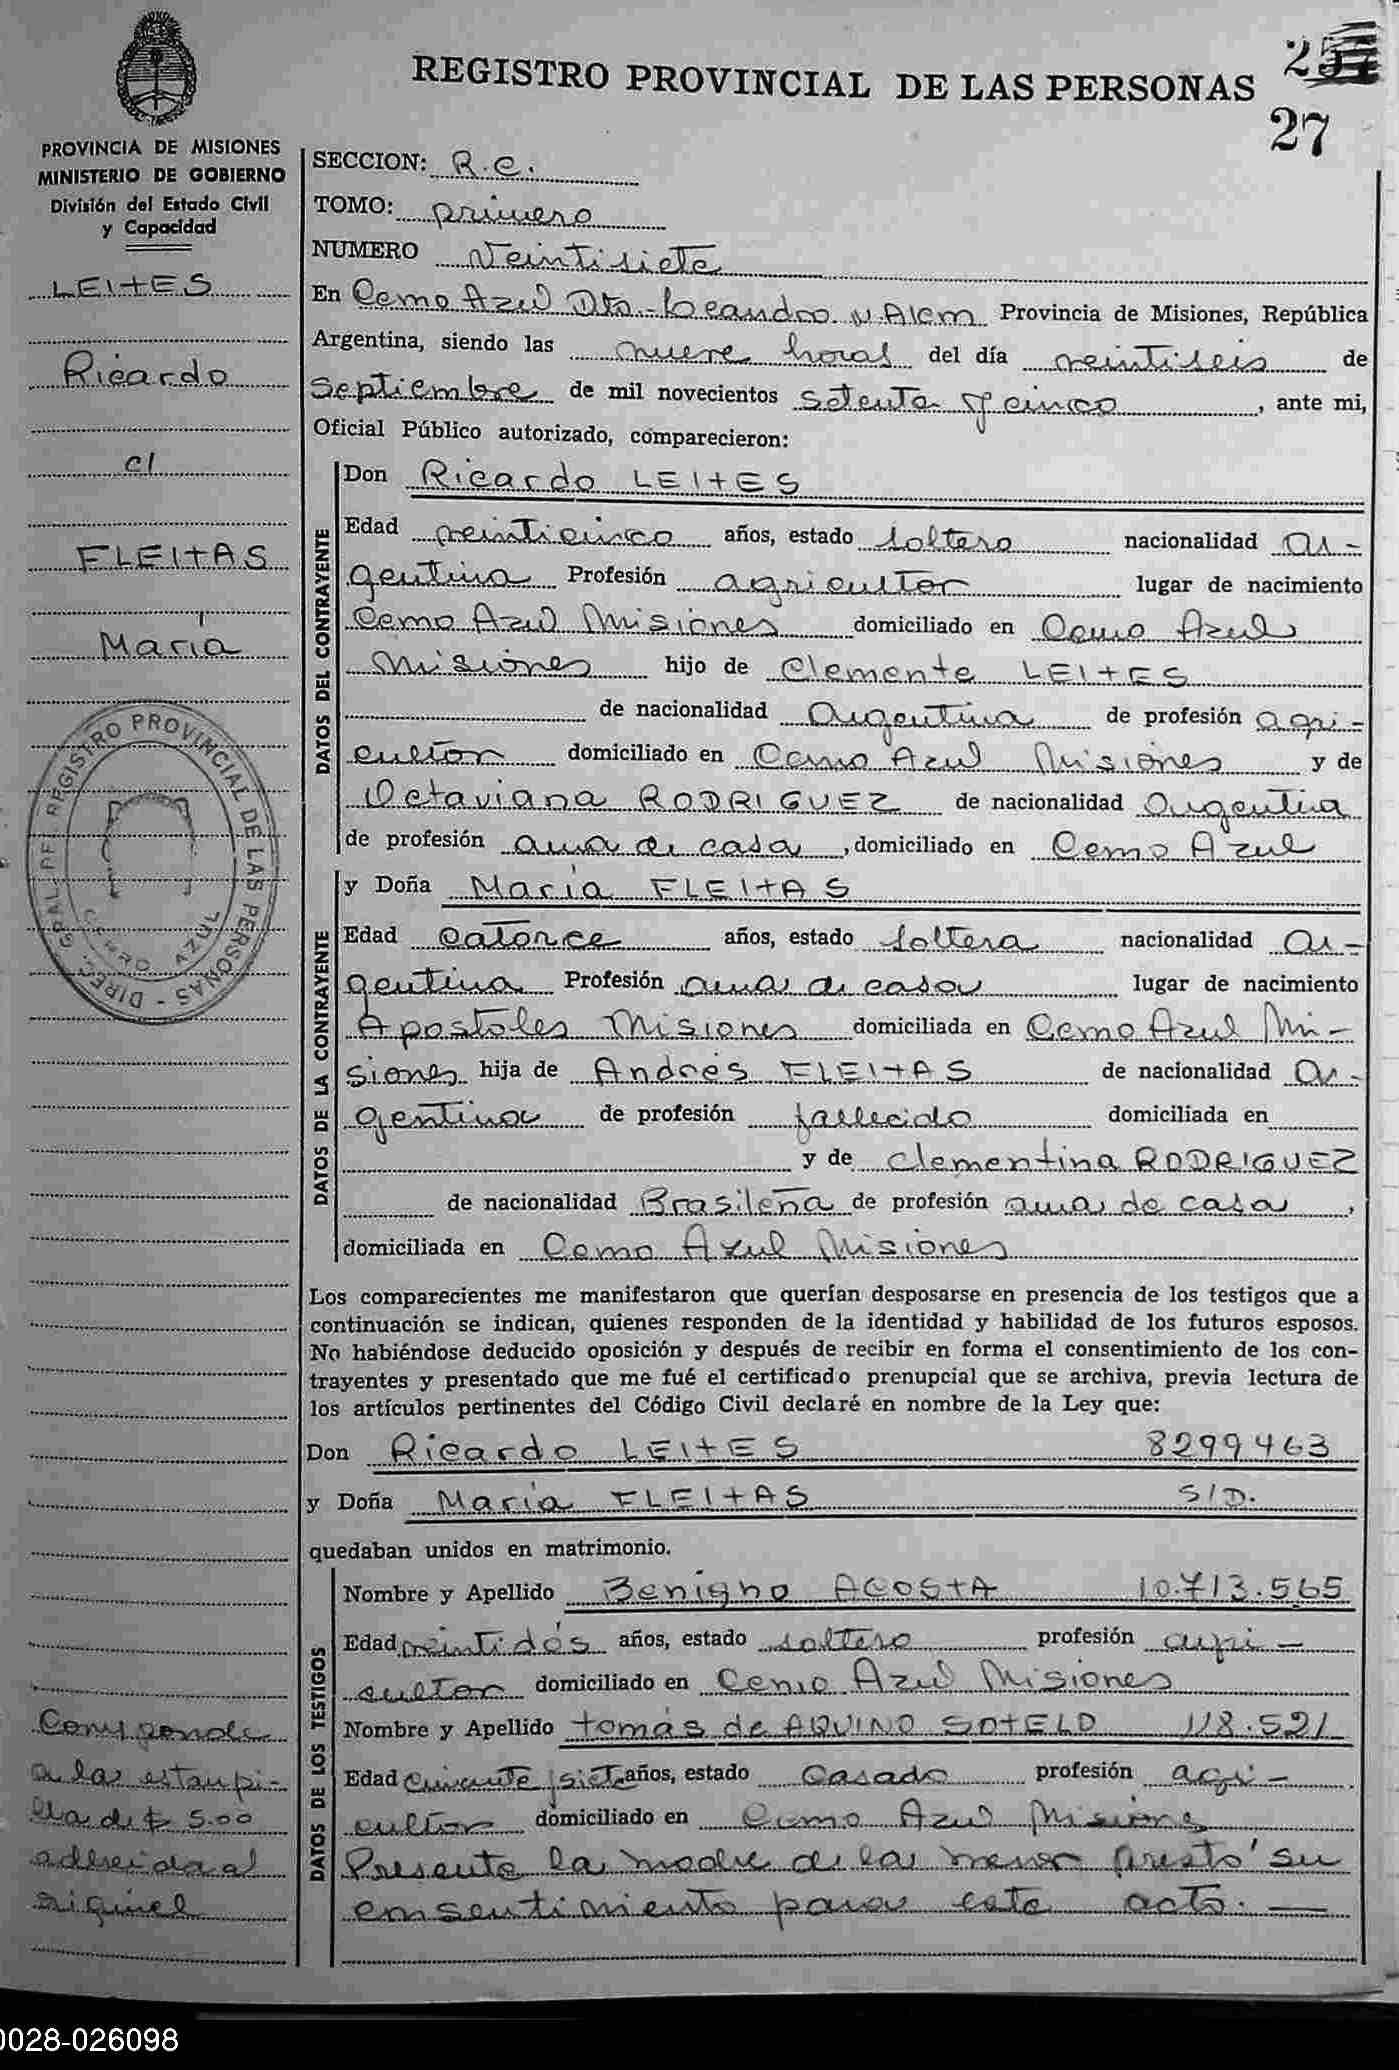 REGISTRO PROVINCIAL DE LAS PERSONAS
27
PROVINCIA DE MISIONES
MINISTERIO DE GOBIERNO
División del Estado Civil
y Capacidad
LEITES
Ricardo
c/
FLEITAS
María
DIREC. GRAL. DEL REGISTRO PROVINCIAL DE LAS PERSONAS -
CERRO AZUL
Corresponde
a la estampi-
lla de $ 5.00
adherida al
SECCION: R.C.
TOMO: primero
NUMERO Veintisiete
En Cerro Azul Dto. Leandro N. Alem Provincia de Misiones, República
Argentina, siendo las nueve horas del día veintiseis de
Septiembre de mil novecientos setenta y cinco, ante mi,
Oficial Público autorizado, comparecieron:
DATOS DEL CONTRAYENTE
Don Ricardo LEITES
Edad veinticinco años, estado soltero nacionalidad ar-
gentina Profesión agricultor lugar de nacimiento
Cerro Azul Misiones domiciliado en Cerro Azul
Misiones hijo de Clemente LEITES
de nacionalidad Argentina de profesión agri-
cultor domiciliado en Cerro Azul Misiones y de
Octaviana RODRIGUEZ de nacionalidad Argentina
de profesión ama de casa, domiciliado en Cerro Azul
DATOS DE LA CONTRAYENTE
y Doña María FLEITAS
Edad catorce años, estado soltera nacionalidad ar-
gentina Profesión ama de casa lugar de nacimiento
Apostoles Misiones domiciliada en Cerro Azul Mi-
siones hija de Andrés FLEITAS de nacionalidad ar-
gentina de profesión fallecido domiciliada en
y de Clementina RODRIGUEZ
de nacionalidad Brasileña de profesión ama de casa,
domiciliada en Cerro Azul Misiones
Los comparecientes me manifestaron que querían desposarse en presencia de los testigos que a
continuación se indican, quienes responden de la identidad y habilidad de los futuros esposos.
No habiéndose deducido oposición y después de recibir en forma el consentimiento de los con-
trayentes y presentado que me fué el certificado prenupcial que se archiva, previa lectura de
los artículos pertinentes del Código Civil declaré en nombre de la Ley que:
Don Ricardo LEITES 8299463
y Doña María FLEITAS S/D.
quedaban unidos en matrimonio.
DATOS DE LOS TESTIGOS
Nombre y Apellido Benigno ACOSTA 10.713.565
Edad veintidós años, estado soltero profesión agri-
cultor domiciliado en Cerro Azul Misiones
Nombre y Apellido Tomás de AQUINO SOTELO 118.521
Edad cincuenta y siete años, estado casado profesión agri-
cultor domiciliado en Cerro Azul Misiones
Presente la madre de la menor prestó su
consentimiento para este acto. —
0028-026098